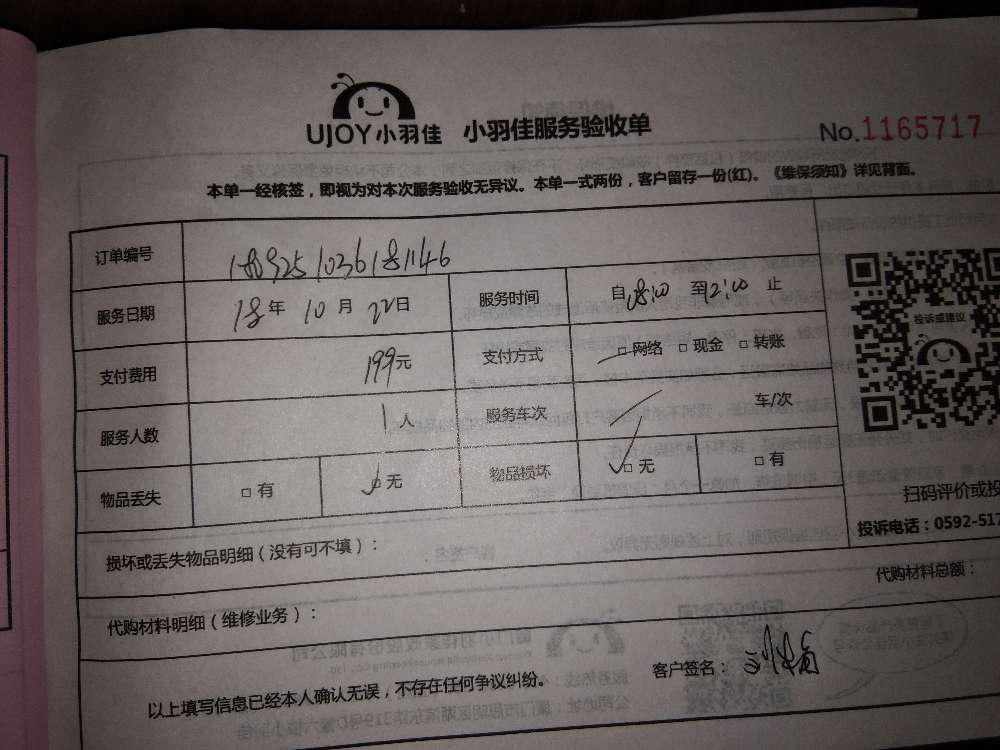 UJOY小羽佳 小羽佳服务验收单 No.1165717
本单一经核签，即视为对本次服务验收无异议。本单一式两份，客户留存一份(红)。《维保须知》详见背面。
订单编号
服务日期 18年 10月 22日 服务时间 自 08:00 至 12:00 止
投诉或建议
支付费用 199元 支付方式 □网络 □现金 □转账
服务人数 1人 服务车次 车/次
物品丢失 □有 □无 物品损坏 □无 □有
扫码评价或投
投诉电话：0592-517
损坏或丢失物品明细（没有可不填）：
代购材料明细（维修业务）： 代购材料总额：
以上填写信息已经本人确认无误，不存在任何争议纠纷。 客户签名：